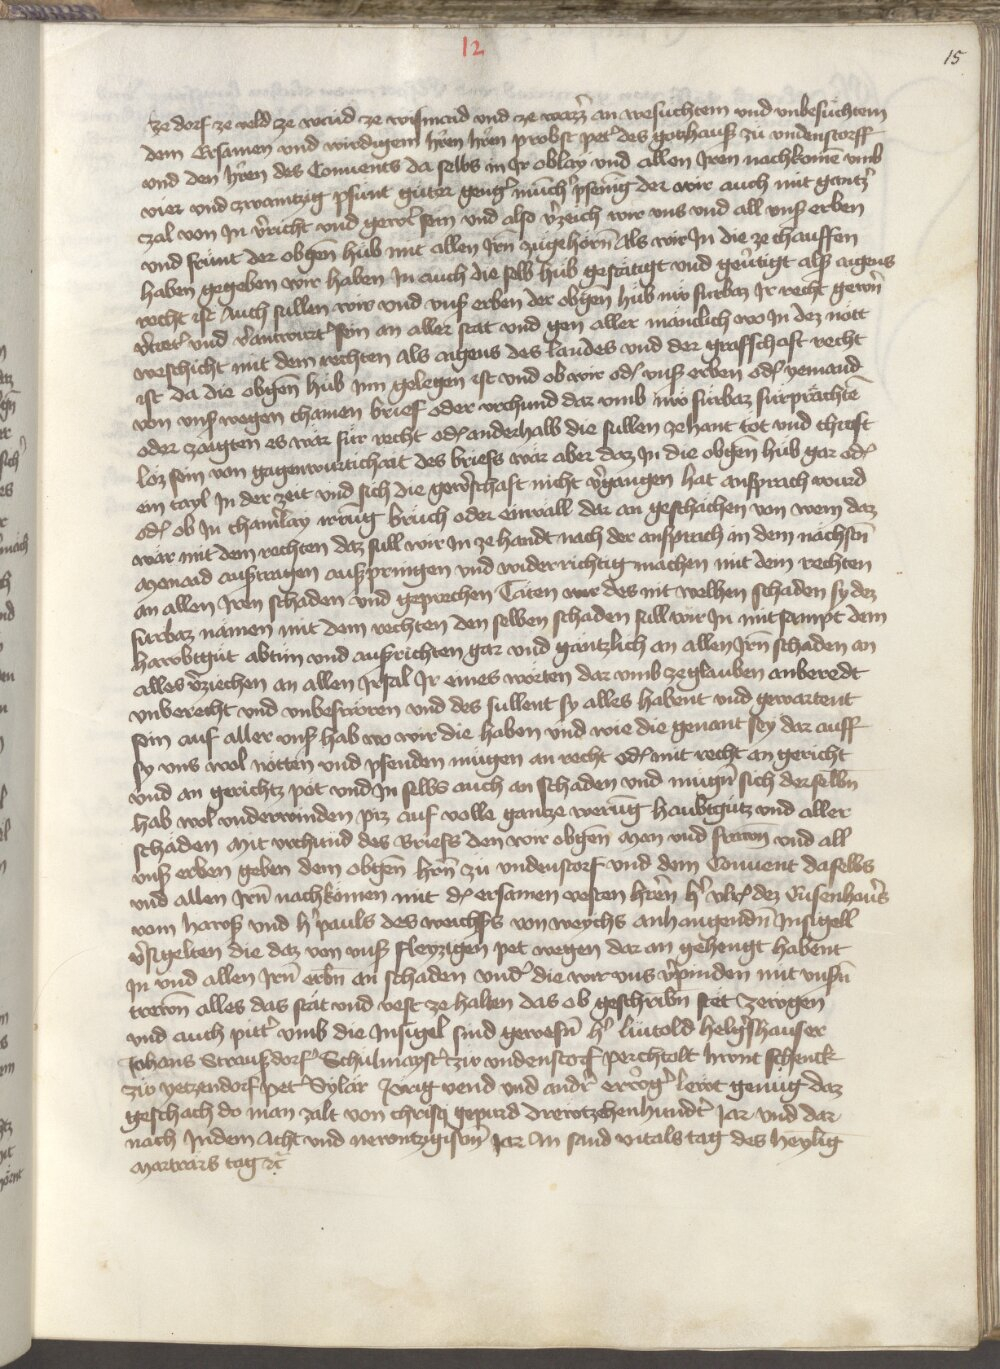 12
15
ze dorf ze veld ze waid ze wismaid und ze wazz̄ an wesuchtem und unbesuchtem
dem Ersamen und wirdigem hrēn hrēn probst pet̄ des gotzhaus zu undenstorff
und den hr̄en des Convents da selbs in Ir oblay und allen Iren nachkomē umb
vier und zwaintzig pfunt guter genḡ münch̄ pfenīg der wir auch mit gantz̄
czal von In v̄richt und gewert sein und also v̄zeich wir uns und all uns̄ erben
und frunt der obgen̄ hub mit allen Irn̄ zugehorn̄ Als wir In die ze chauffen
haben gegeben wir haben In auch die selb hub gestätigt und gev̄tigt als aigens
recht ist Auch sullen wir und uns̄ erben der obgen̄ hub nw furbaz Ir recht gewn̄
v̄tret̄ und v̄antwurt̄ sein an aller stat und gen aller mänclich wo In dez nott
weschicht mit dem rechten Als aigens des landes und der grafschaft recht
ist da die obgen̄ hub inn gelegen ist und ob wir od̄ uns̄ erben od̄ yemand
von uns̄ wegen chainen brief oder urchund dar umb nw furbaz furprächte
oder zaigten es wär für recht od̄ anderhalb die sullen ze hant tot und chreft
loz sein von gagenwurtichait des briefs wär aber daz In die obgen̄ hub gar od̄
ein tayl In der zeit und sich die gewerschaft nicht v̄gangen hat ansprach wurd
od̄ ob In chain̄lay irrūg bruch oder einvall dar an geschächen von wem daz
wär mit dem rechten daz sull wir In ze handt nach der ansprach in dem nächstn̄
Menaid austragen auspringen und widerrichtig machen mit dem rechten
an allen Iren schaden und geprechen Täten wir des nit welhen schaden sy dez
furbaz namen mit dem rechten den selben schaden sull wir In mitsampt dem
hawbtgut abtun und ausrichten gar und gäntzlich an allen Irn̄ schaden an
alles v̄ziechen an allen Irsal Ir eines worten dar umb ze glauben anberedt
unberecht und unbesworen und des sullent sy alles habent und gewartent
sein auf aller uns̄ hab wo wir die haben und wie die genant sey dar auff
sy uns wol nötten und pfenden mugen an recht od̄ mit recht an gericht
und an gerichtz pot und In selbs auch an schaden und mugn̄ sich derselbn̄
hab wol underwinden piz auf volle gantze werūg haubtgutz und aller
schäden Mit urchund des Briefs den wir obgen̄ Man und frawn̄ und all
uns̄ erben geben dem obgen̄ hrn̄ zu undenstorf und dem Convent daselbs
und allen Irn̄ nachkomen mit d̄ ersamen vesten hrēn h̄ ulr̄ dez Eusenhov̄s
vom hawß und h̄ pauls des weichs̄s von weychs anhangendn̄ Insigell
v̄sigelten die daz von uns̄ fleyzigen pet wegen dar an gehengt habent
In und allen Irn̄ erbn̄ an schaden und̄ die wir uns v̄pinden mit unsn̄
trewn̄ alles das stät und vest ze halten das ob geschribn̄ stet Zewgen
und auch pitt̄ umb die Insigel sind gewesn̄ h̄ lutold helgshauser
Johans Strauzdorf̄ Schulmayst̄ zw undenstorf Perchtolt hront schenck
zw yetzendorf pet̄ Sylär Jörig vend und andr̄ erwḡ lewt genug daz
geschach do man zalt von christi gepurd Drewtzehenhundt̄ Jar und dar
nach Indem Acht und newntzigisōn Jar An sand vitals tag des heylīg
Marträrs tag ꝛc̄